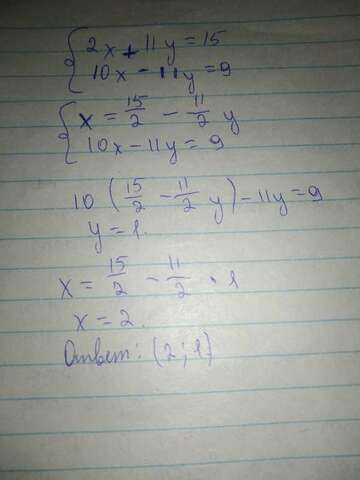 2x + 11y = 15
10x - 11y = 9
x = 15/2 - 11/2 y
10x - 11y = 9
10 (15/2 - 11/2 y) - 11y = 9
y = 1.
x = 15/2 - 11/2 · 1
x = 2.
Ответ: (2 ; 1)